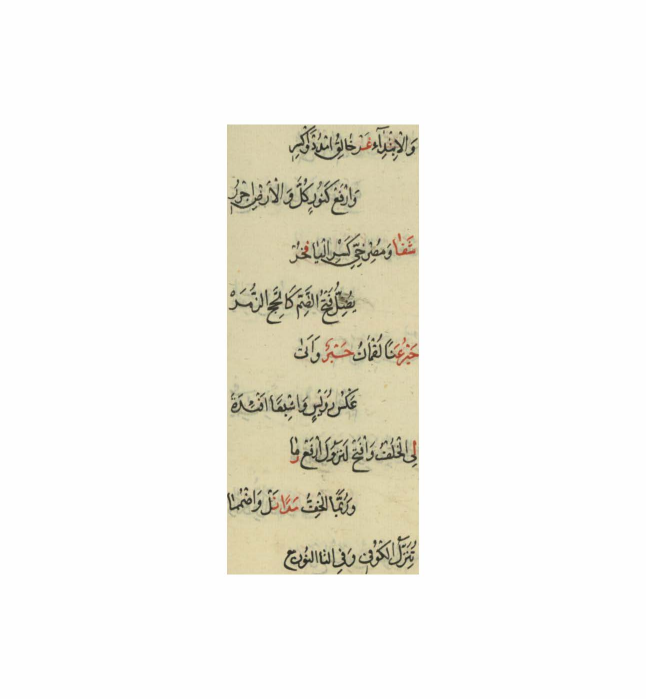 وَالْاِبْتِدَاء غَرّ خَالِقُ امْدُدْ وَاكْسِرِ
وَارْفَعْ كَنُورِ كُلَّ وَالْاَرْضِ اجْرُرِ
شَفَا وَمُصْرِخِيِّ كَسْرُ الْيَا فَخُرْ
يُضِلُّ فَتْحُ الضَّمِّ كَالْحَجِّ الزُّمَرْ
حَبْرٌ غِنًا لُقْمَانُ حَبْرٌ وَاَتَى
عَكْسُ رُوَيْسٍ وَاشْبِعًا اَفْئِدَةً
لِى الْخُلْفُ وَافْتَحْ لَتَزُولَ ارْفَعْ رِمَا
وَرُبَّمَا الْخِفُّ مَدًا نَلْ وَاضْمُمَا
تُنَزَّلُ الْكُوفِى وَفِى التَّا النُّونُ مَعْ